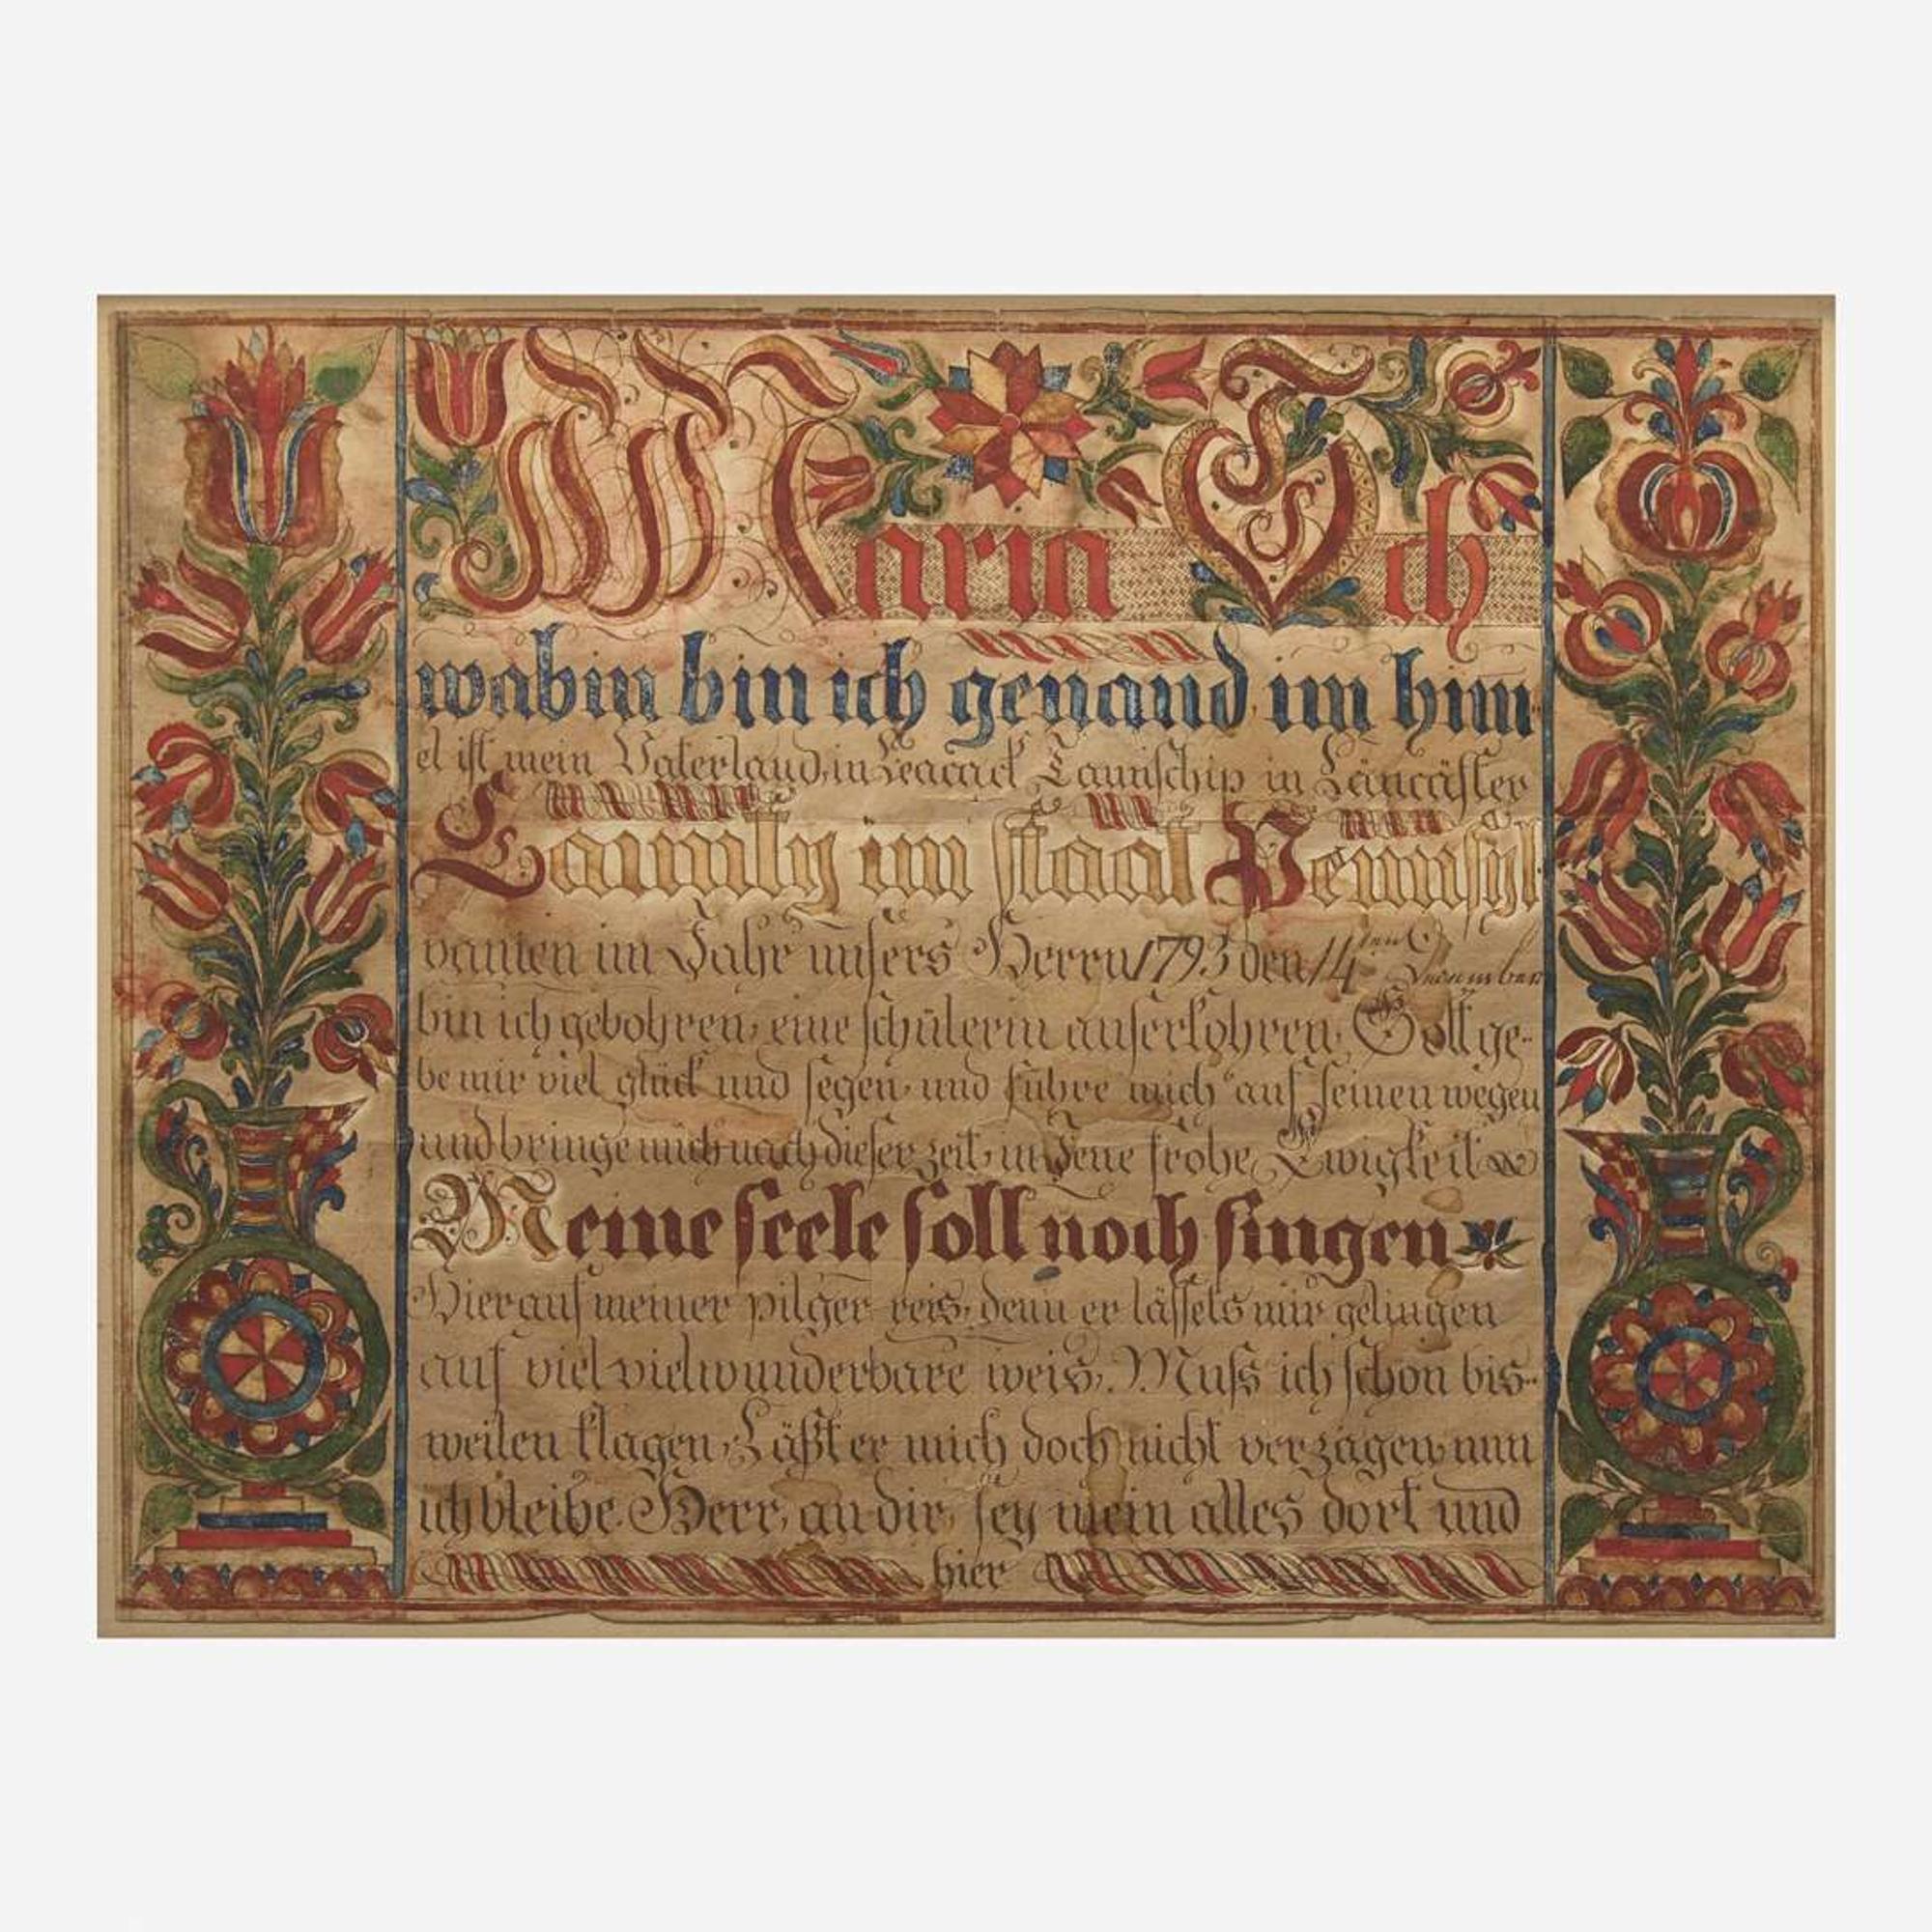 Maria Ich
wabin bin ich genand im him
el ist mein Vaterland, in Leacack Taunschip in Läncäster
Caunty im staat Pennsyl
vanien im Jahr unsers Herrn 1793 den 14
bin ich gebohren, eine schülerin auserkohren, Gott ge-
be mir viel glück und segen, und führe mich auf seinen wegen
und bringe mich nach dieser zeit, in Jene frohe Ewigkeit
Meine seele soll noch singen
Hier auf meiner pilger reis, denn er lässets mir gelingen
auf viel viel wunderbare weis, Muss ich schon bis-
weilen klagen, Läßt er mich doch nicht verzagen, nun
ich bleibe Herr, an dir, sey mein alles dort und
hier